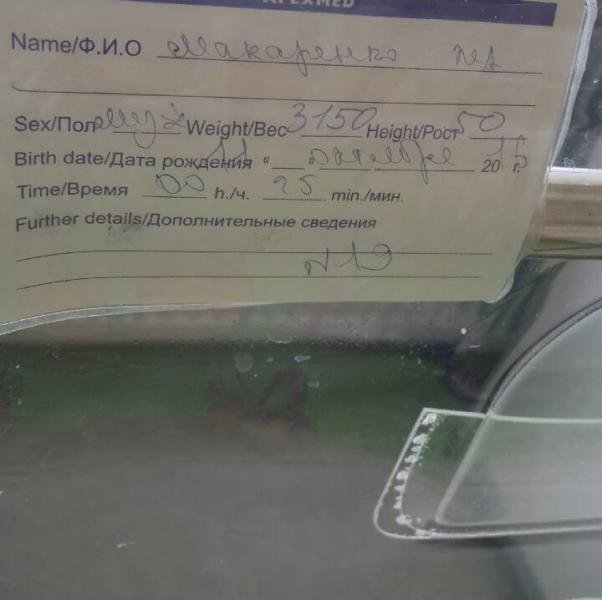 APEXMED
Name/Ф.И.О Макаренко
Sex/Пол муж Weight/Вес 3150 Height/Рост 50
Birth date/Дата рождения 11 « » октября 20 г.
Time/Время 00 h./ч. 25 min./мин.
Further details/Дополнительные сведения